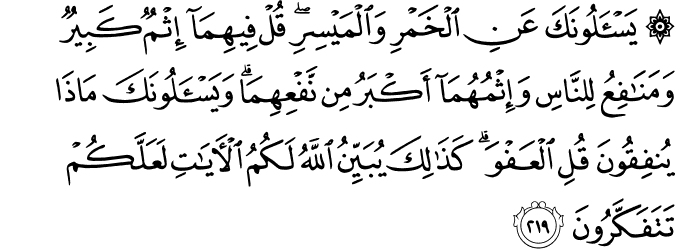 ۞ يَسْـَٔلُونَكَ عَنِ ٱلْخَمْرِ وَٱلْمَيْسِرِ ۖ قُلْ فِيهِمَآ إِثْمٌ كَبِيرٌ
وَمَنَـٰفِعُ لِلنَّاسِ وَإِثْمُهُمَآ أَكْبَرُ مِن نَّفْعِهِمَا ۗ وَيَسْـَٔلُونَكَ مَاذَا
يُنفِقُونَ قُلِ ٱلْعَفْوَ ۗ كَذَٰلِكَ يُبَيِّنُ ٱللَّهُ لَكُمُ ٱلْـَٔايَـٰتِ لَعَلَّكُمْ
تَتَفَكَّرُونَ ٢١٩